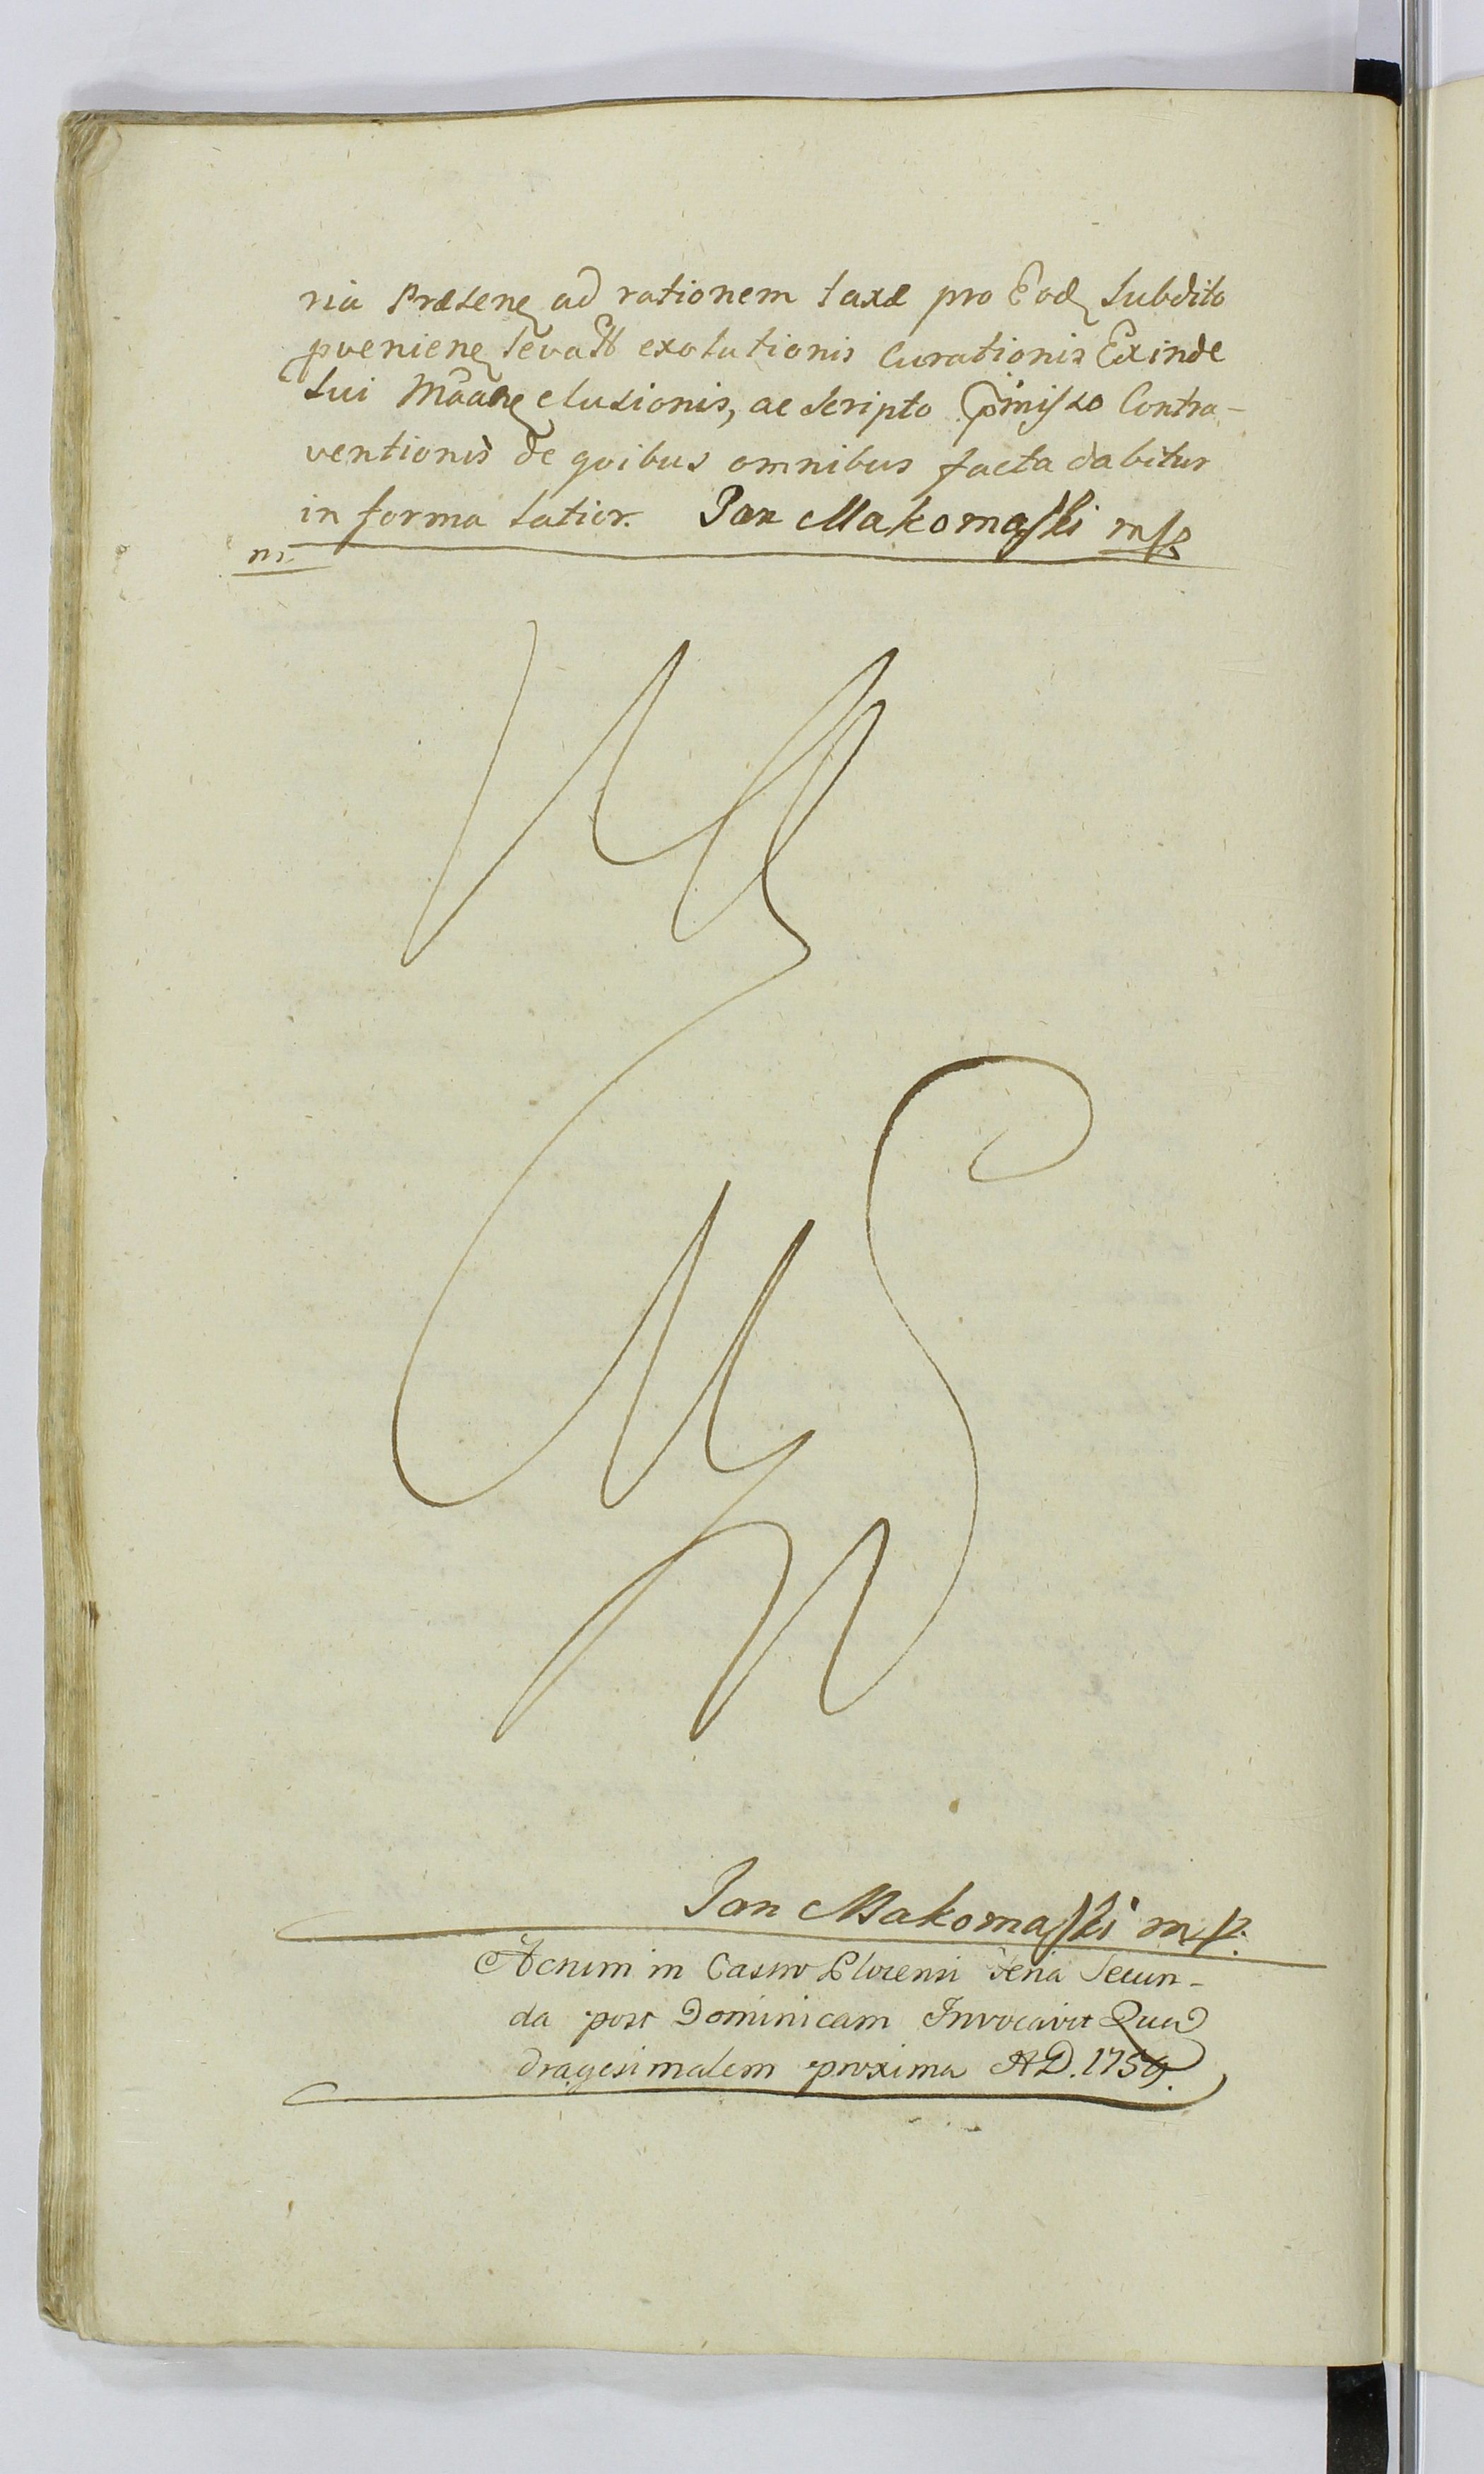 ria Præsene ad rationem taxæ pro Eod Subdito
pveniene exolutionis Curationis Exinde
Sui elusionis, ac Scripto pmisso Contra-
ventionis de quibus omnibus facta dabitur
in forma latior. Jan Makomaski mp
m.
Jan Makomaski mp.
Actum in Castro Feria Secun-
da post Dominicam Invocavit Qua
dragesimalem proxima AD. 1759.